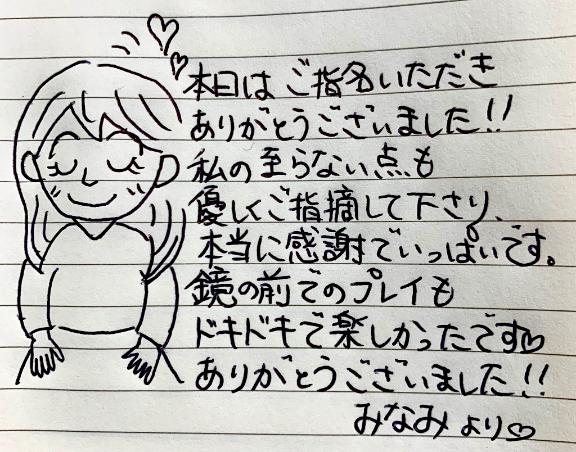 本日はご指名いただき
ありがとうございました!!
私の至らない点も
優しくご指摘して下さり、
本当に感謝でいっぱいです。
鏡の前でのプレイも
ドキドキで楽しかったです♡
ありがとうございました!!
みなみより♡